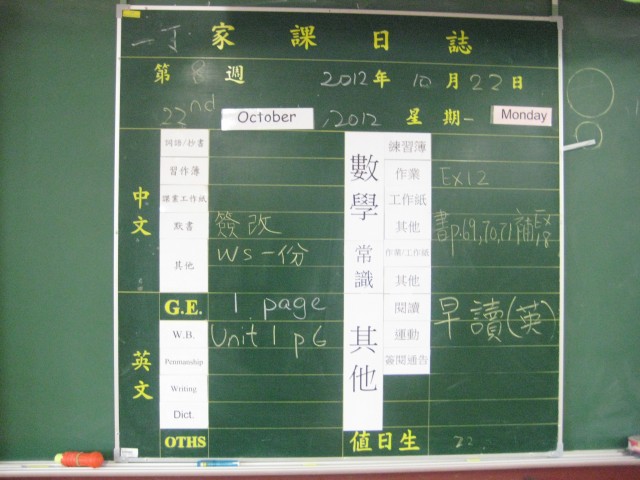 一丁 家課日誌
第 8 週 2012年 10月22日
22nd October , 2012 星期一 Monday
中文
詞語/抄書
習作簿
課業工作紙
默書 簽改
其他 WS一份
英文
G.E. 1 page
W.B. Unit 1 p6
Penmanship
Writing
Dict.
OTHS
數學
練習簿
作業 Ex12
工作紙
其他 書p.69,70,71 補Ex 18
常識
作業/工作紙
其他
其他
閱讀 早讀(英)
運動
簽閱通告
值日生 22.